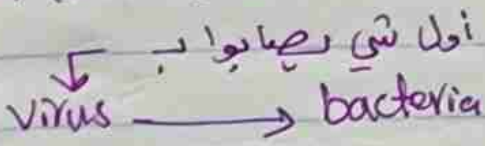 أول شي بصابوا ب
virus → bacteria